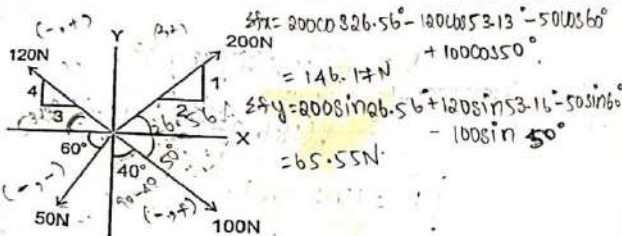 (-,+)
Y
(+,+)
120N
200N
4
3
1
2
26.56
X
60°
50°
40°
90-40
(-,-)
(-,+)
50N
100N
Σfx= 200cos26.56°-120cos53.13°-50cos60°
+100cos50°
= 146.17N
Σfy=200sin26.56°+120sin53.16°-50sin60°
- 100sin 50°
=65.55N